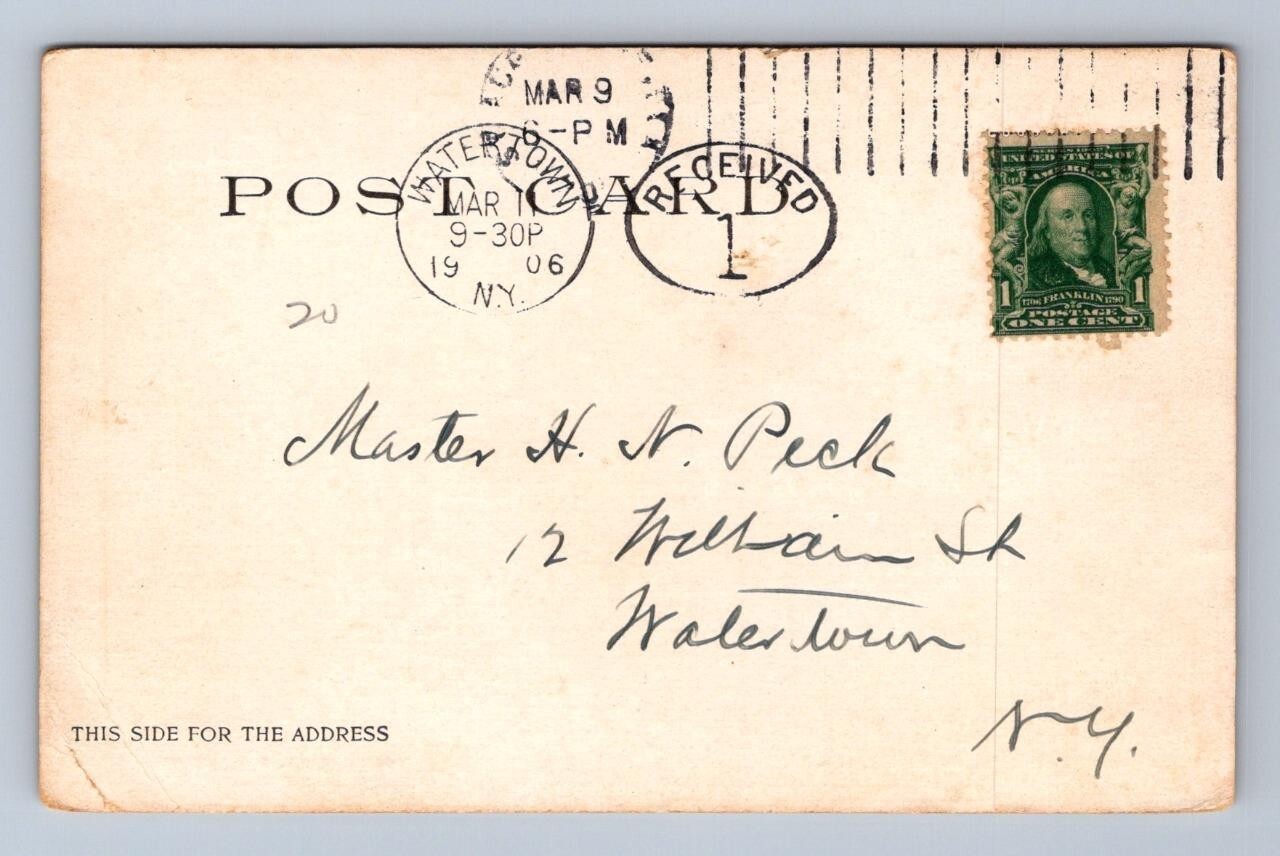 MAR 9
6-PM
WATERTOWN
MAR 11
9-30P
19 06
N.Y.
RECEIVED
1
POST CARD
UNITED STATES OF
AMERICA
1706 FRANKLIN 1790
1 1
POSTAGE
ONE CENT
20
Master H. N. Peck
12 William St
Watertown
N.Y.
THIS SIDE FOR THE ADDRESS